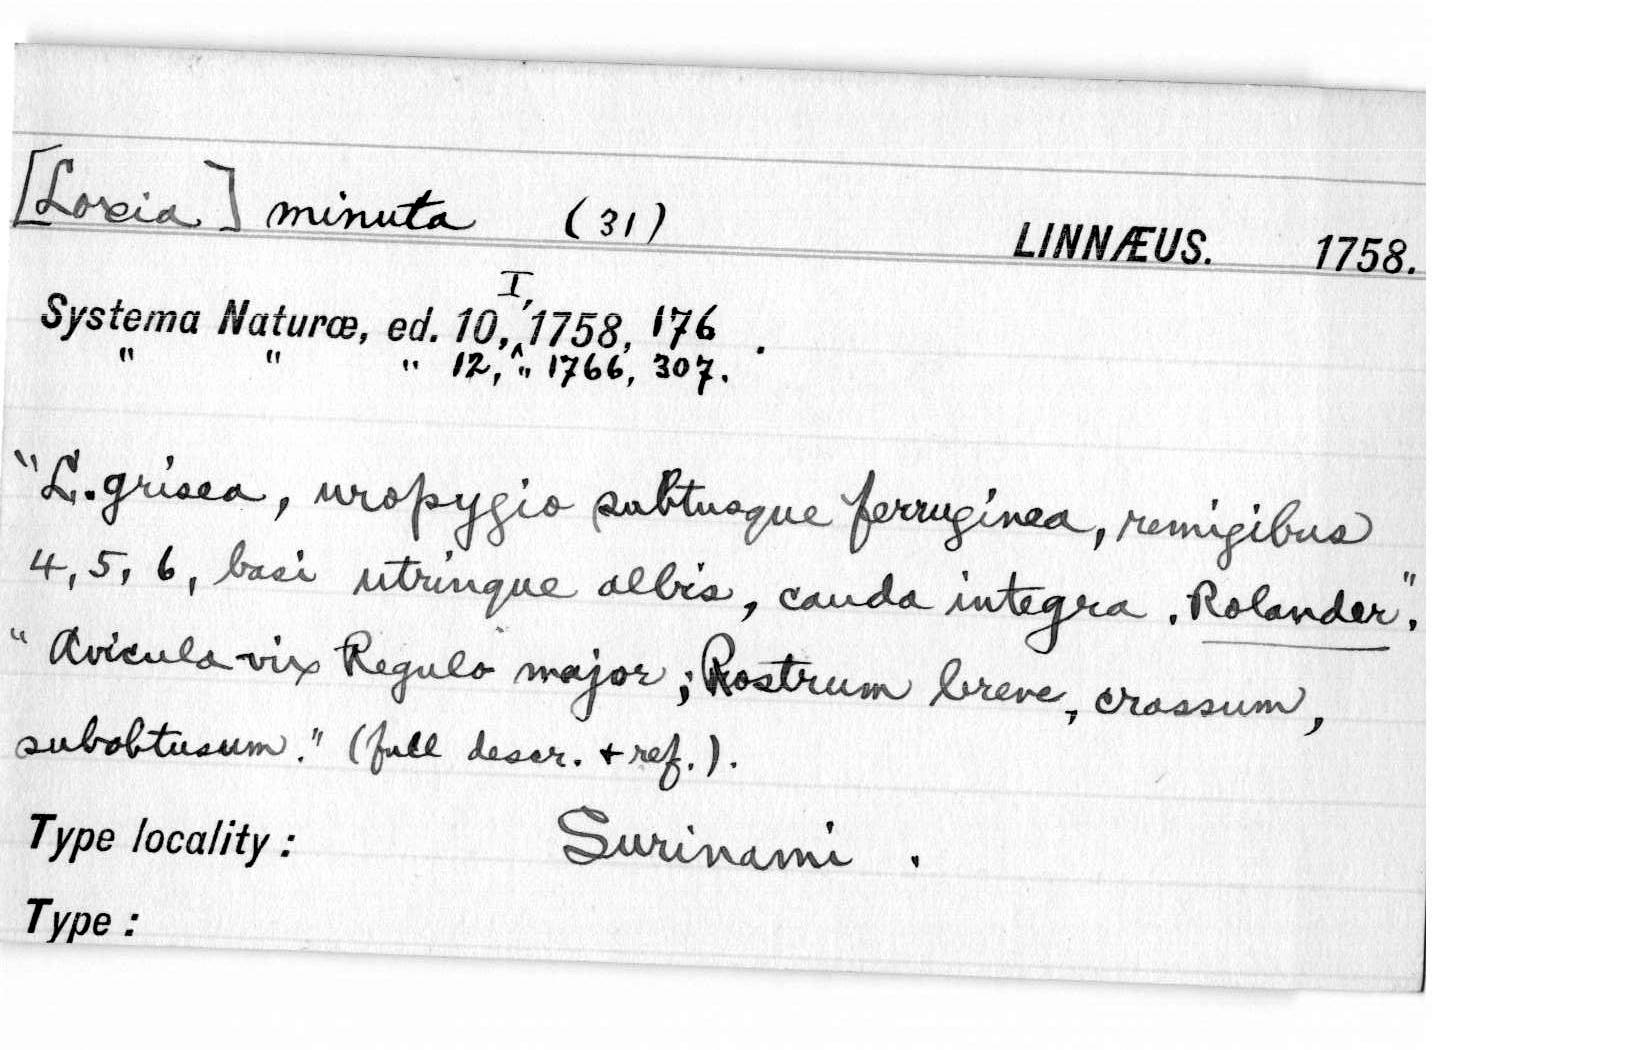 [Loxia] minuta (31) LINNÆUS. 1758.
Systema Naturæ, ed. 10, I, 1758, 176.
" " " 12, " 1766, 307.
"L. grisea, uropygio subtusque ferruginea, remigibus
4, 5, 6, basi utrinque albis, cauda integra. Rolander".
"Avicula vix Regulo major; Rostrum breve, crassum,
subobtusum." (full descr. + ref.).
Type locality: Surinami.
Type: